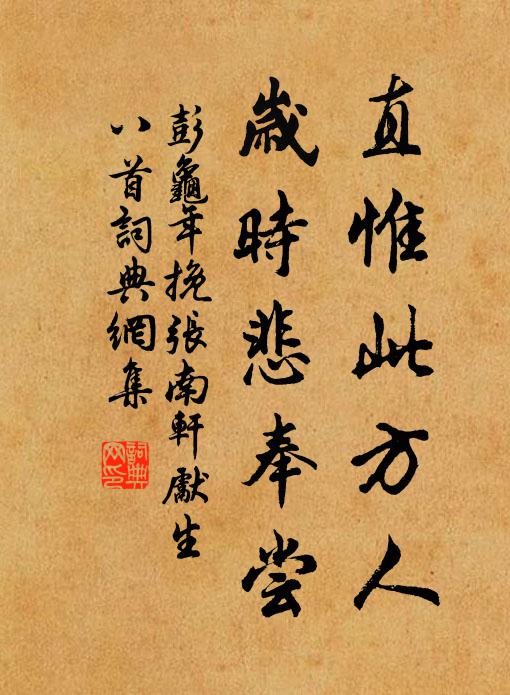 直惟此方人
歲時悲奉尝
彭龜年挽張南軒獻生
八首詞典網集
詞典
网印